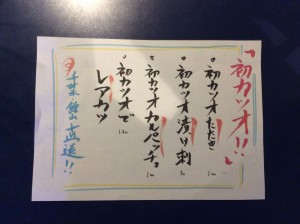 「初カツオ!!」
。初カツオたたき
。初カツオ漬け刺
。初カツオカルパッチョ
。初カツオで
レアカツ
千葉・館山直送!!